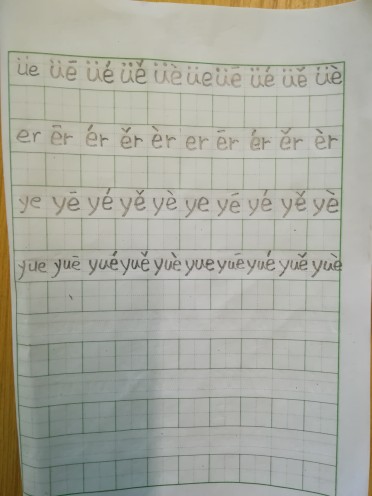 üe üē üé üě üè üe üē üé üě üè
er ēr ér ěr èr er ēr ér ěr èr
ye yē yé yě yè ye yē yé yě yè
yue yuē yué yuě yuè yue yuē yué yuě yuè